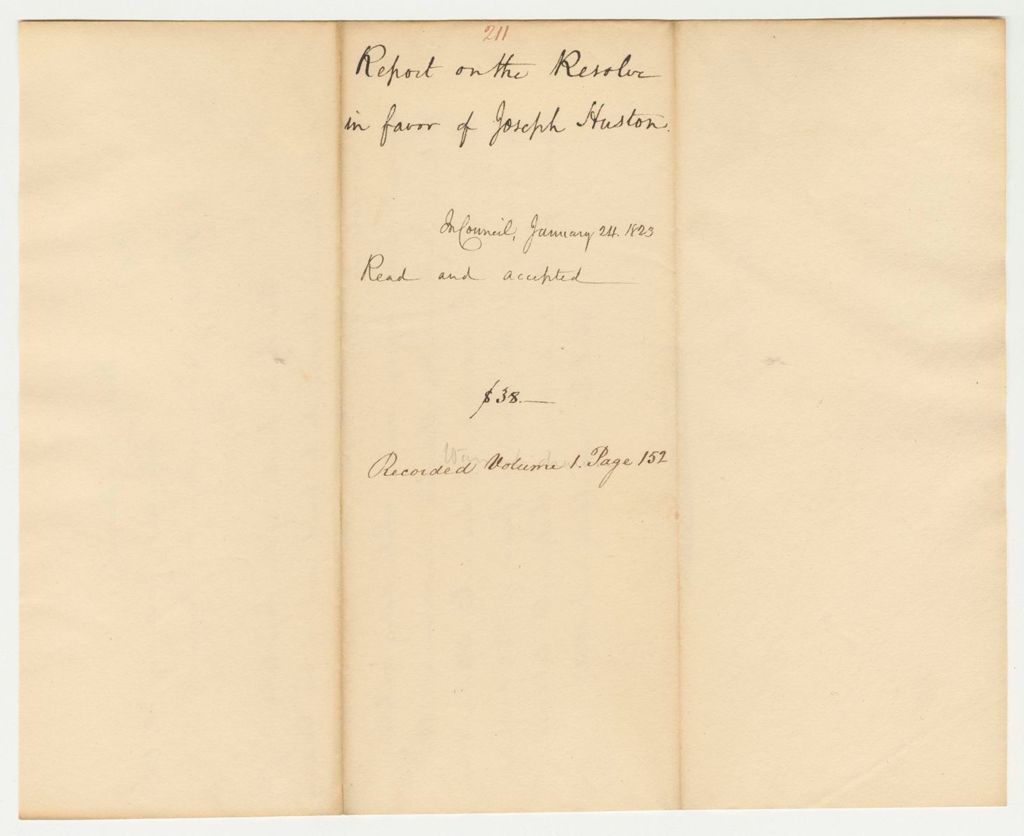 211
Report on the Resolve
in favor of Joseph Huston.
In Council, January 24. 1823
Read and accepted
$38.—
Recorded Volume 1. Page 152